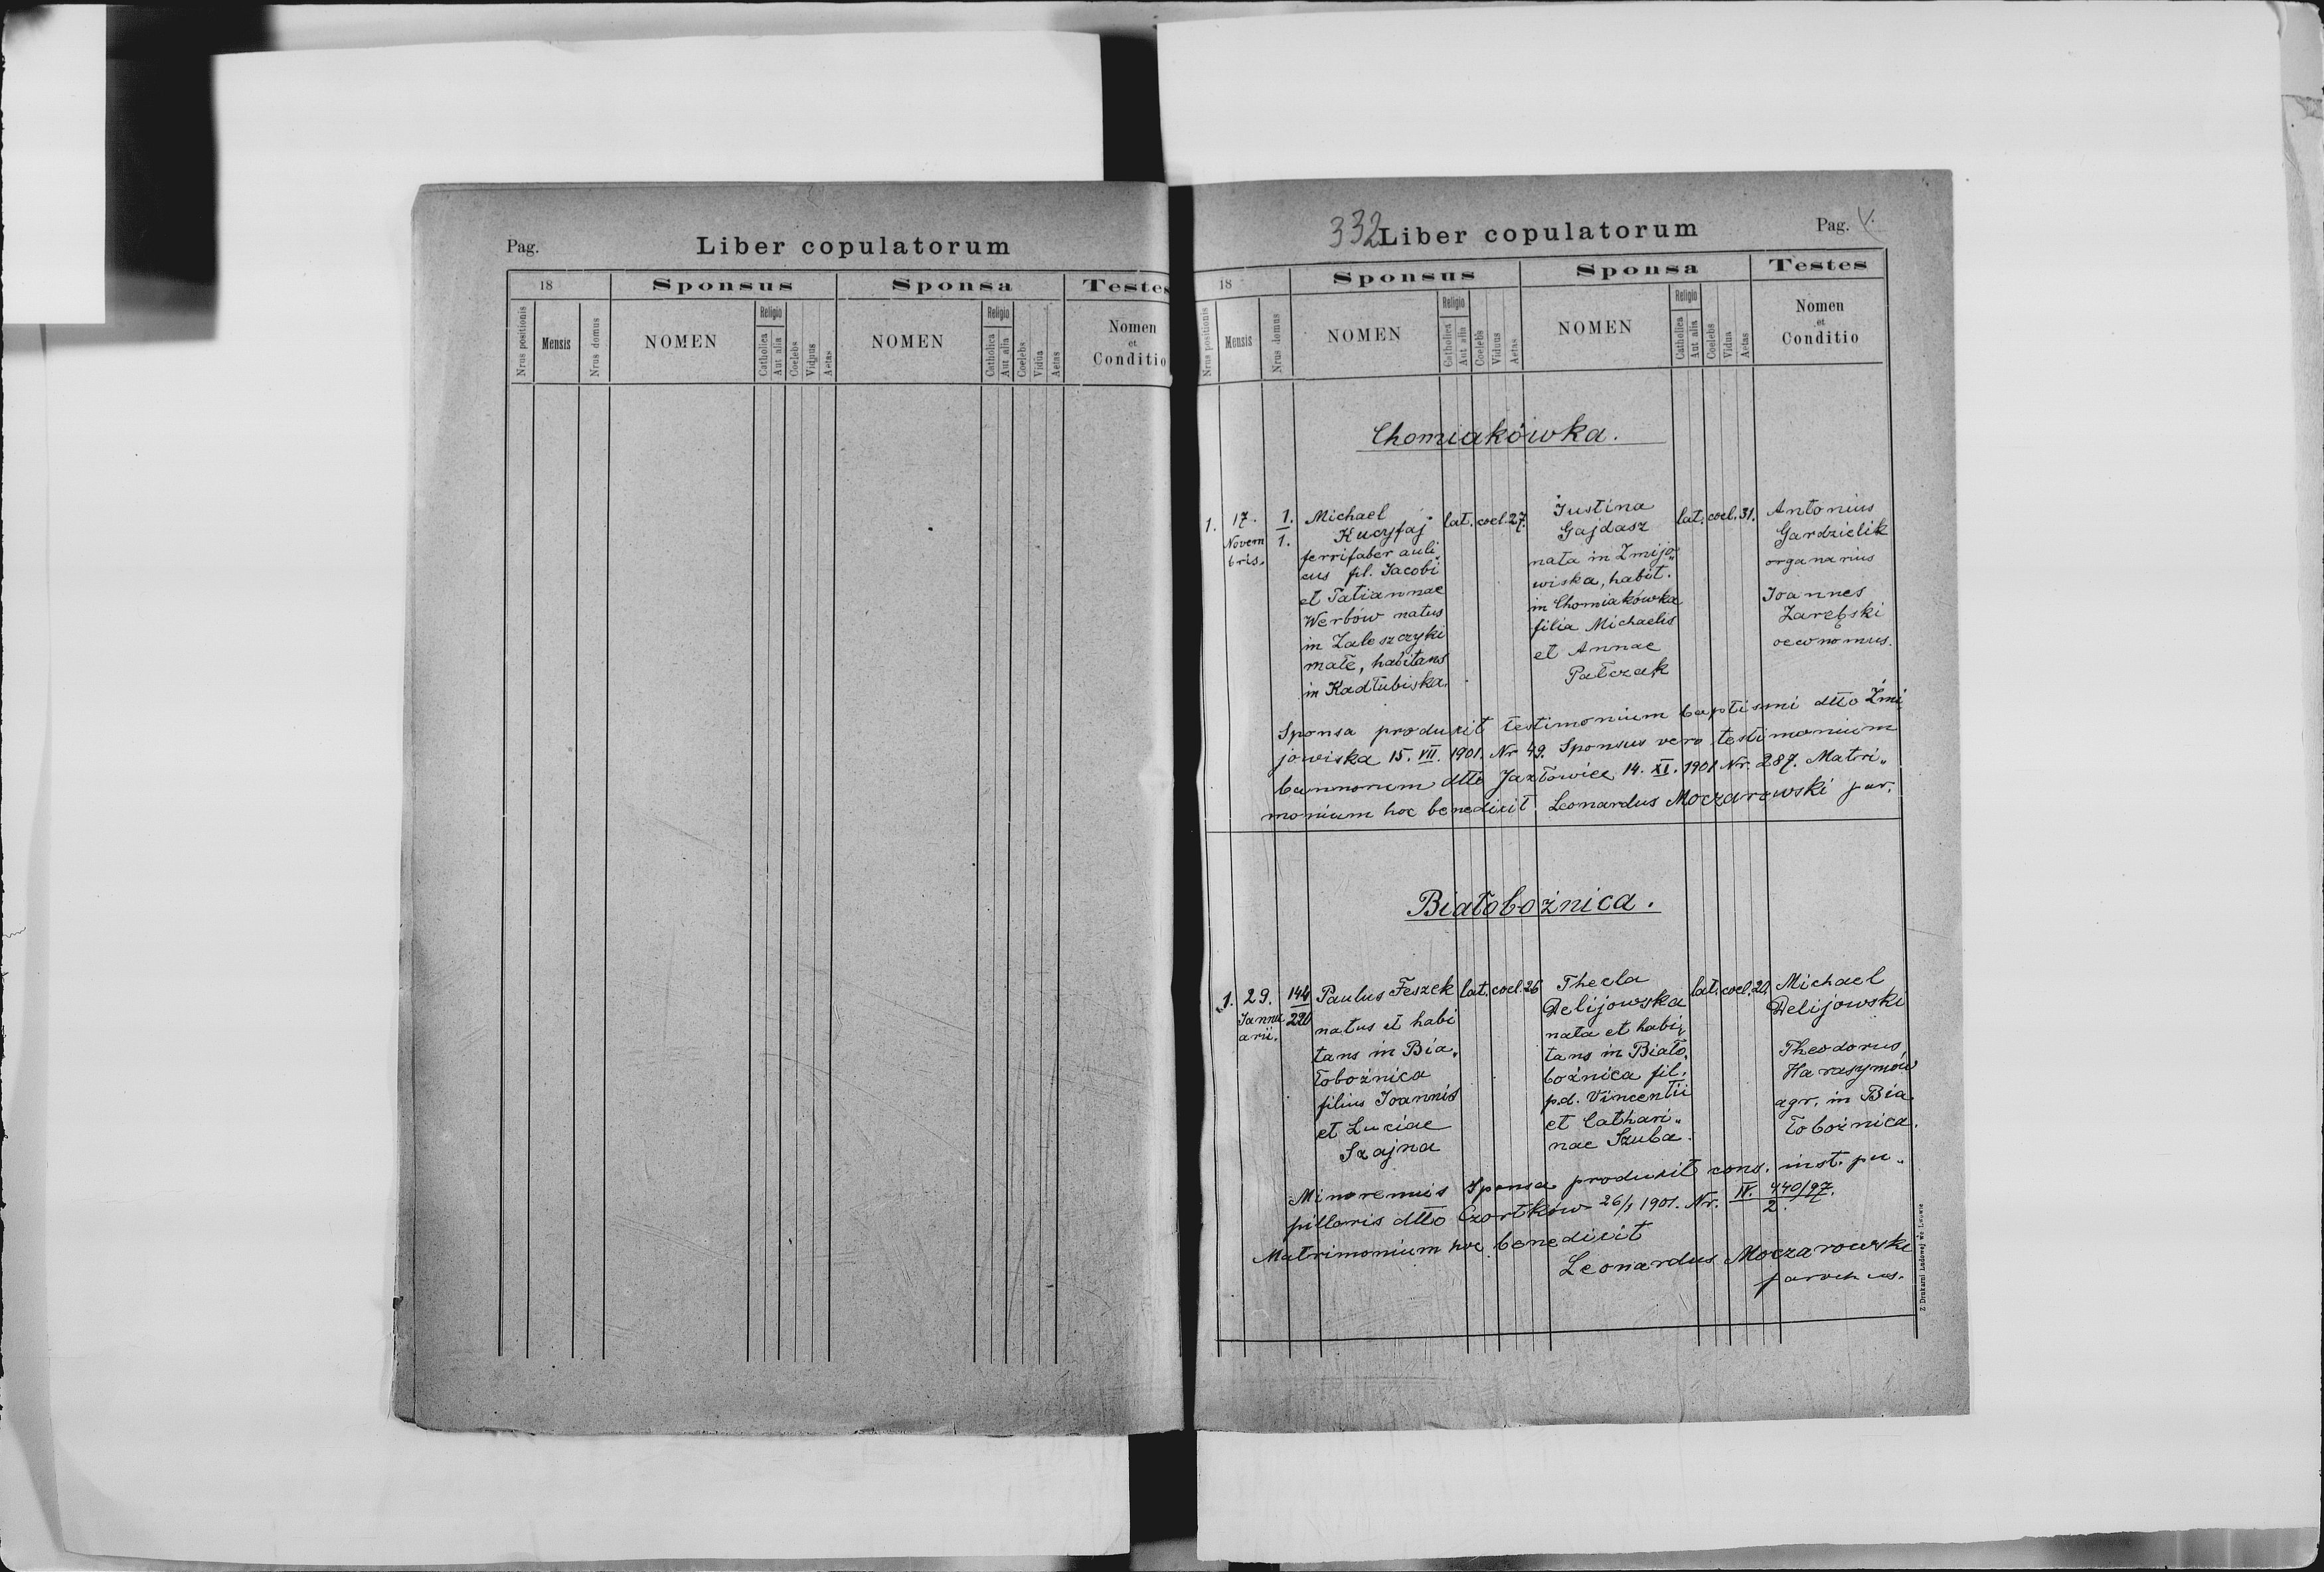 Pag.
Liber copulatorum
18
Sponsus
Sponsa
Testes
Nrus positionis
Mensis
Nrus domus
NOMEN
Religio
Catholica
Aut alia
Coelebs
Viduus
Aetas
NOMEN
Religio
Catholica
Aut alia
Coelebs
Vidua
Aetas
Nomen
et
Conditio
332
Liber copulatorum
Pag. V.
18
Sponsus
Sponsa
Testes
Nrus positionis
Mensis
Nrus domus
NOMEN
Religio
Catholica
Aut alia
Coelebs
Viduus
Aetas
NOMEN
Religio
Catholica
Aut alia
Coelebs
Vidua
Aetas
Nomen
et
Conditio
Chomiakówka.
1.
17.
Novem
bris.
1.
1.
Michael
Kucyfaj
ferrifaber auli„
cus fil. Jacobi
et Tatiannae
Werbów natus
in Zaleszczyki
małe, habitans
in Kadłubiska.
lat. coel. 27.
Justina
Gajdasz
nata in Żmijo„
wiska, habit.
in Chomiakówka
filia Michaelis
et Annae
Pałczak
lat. coel. 31.
Antonius
Gardzielik
organarius
Joannes
Zarębski
oeconomus.
Sponsa produxit testimonium baptismi dtto Żmi
jowiska 15. VII. 1901. Nr 49. Sponsus vero testimonium
bannorum dtto Jazłowice 14. XI. 1901 Nr. 287. Matri„
monium hoc benedixit Leonardus Moczarowski par.
Białobożnica.
1.
29.
Janu
arii.
144
220
Paulus Feszek
natus et habi
tans in Bia„
łobożnica
filius Joannis
et Luciae
Szajna
lat. coel. 26
Thecla
Delijowska
nata et habi„
tans in Biało„
bożnica fil.
p.d. Vincentii
et Cathari„
nae Szuba.
lat. coel. 20.
Michael
Delijowski
Theodorus
Harasymów
agr. in Bia
łobożnica.
Minorennis Sponsa produxit cons. inst. pu„
pillaris dtto Czortków 26/1 1901. Nr. IV. 440/97.
2
Matrimonium hoc benedixit
Leonardus Moczarowski
parochus.
Z Drukarni Ludowej we Lwowie